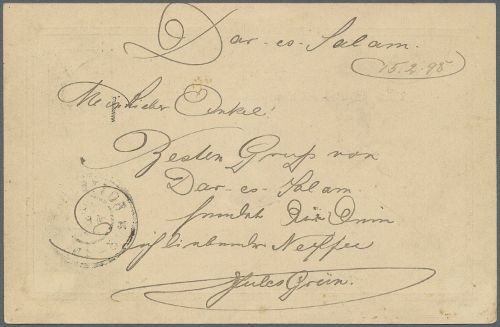 Dar-es-Salam.
15.2.98
Mein lieber Onkel!
Besten Gruß von
Dar-es-Salam
sendet Dir Dein
dich liebender Neffe
Jules Grün.